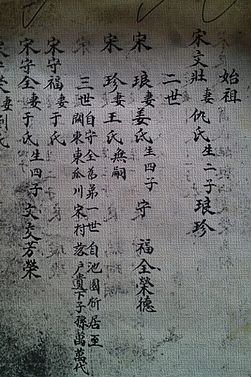 始祖
宋文壯妻仇氏生二子琅珍
二世
宋 琅妻姜氏生四子 守 福全榮德
宋 珍妻王氏無嗣
三世自守全為第一世自池圊所居至
關東東谷川宋村落戶遺下子孫萬萬代
宋守福妻于氏
宋守全妻于氏生四子 文文芳榮
宋 榮妻劉氏